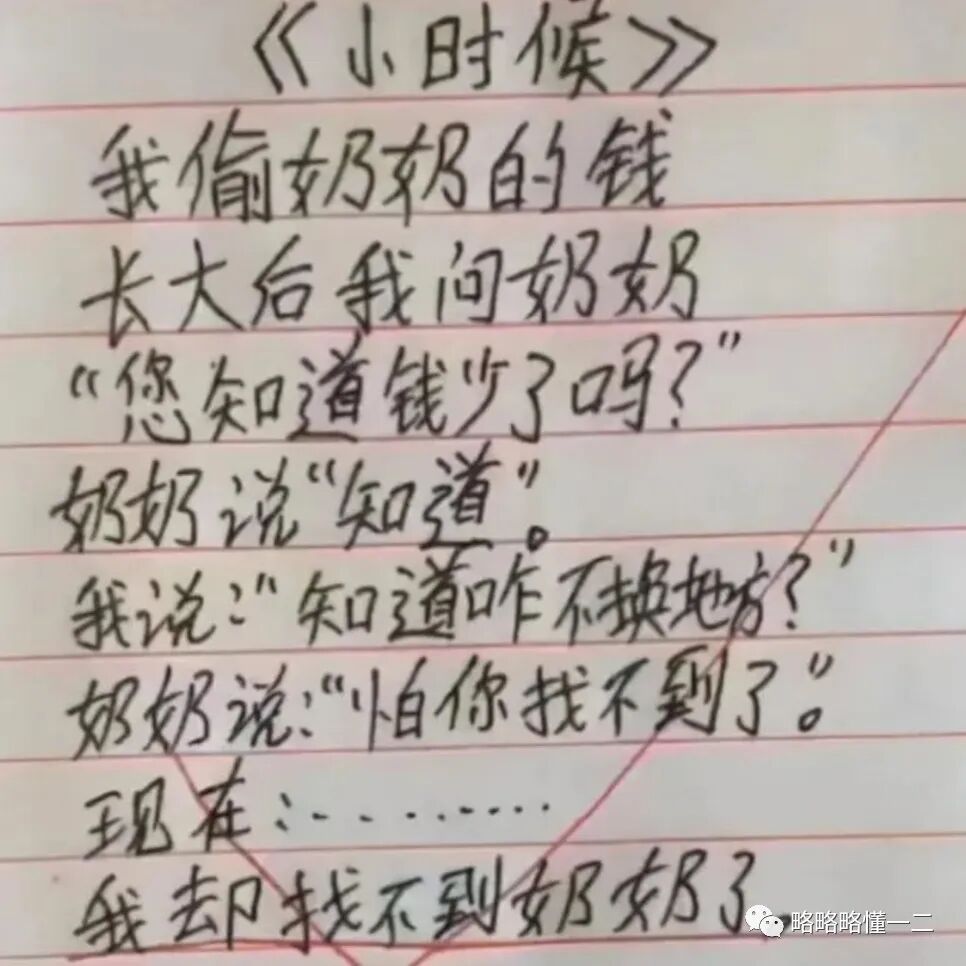 《小时候》
我偷奶奶的钱
长大后我问奶奶
“您知道钱少了吗?”
奶奶说“知道”。
我说:“知道咋不换地方?”
奶奶说:“怕你找不到了”。
现在:………
我却找不到奶奶了。
略略略懂一二